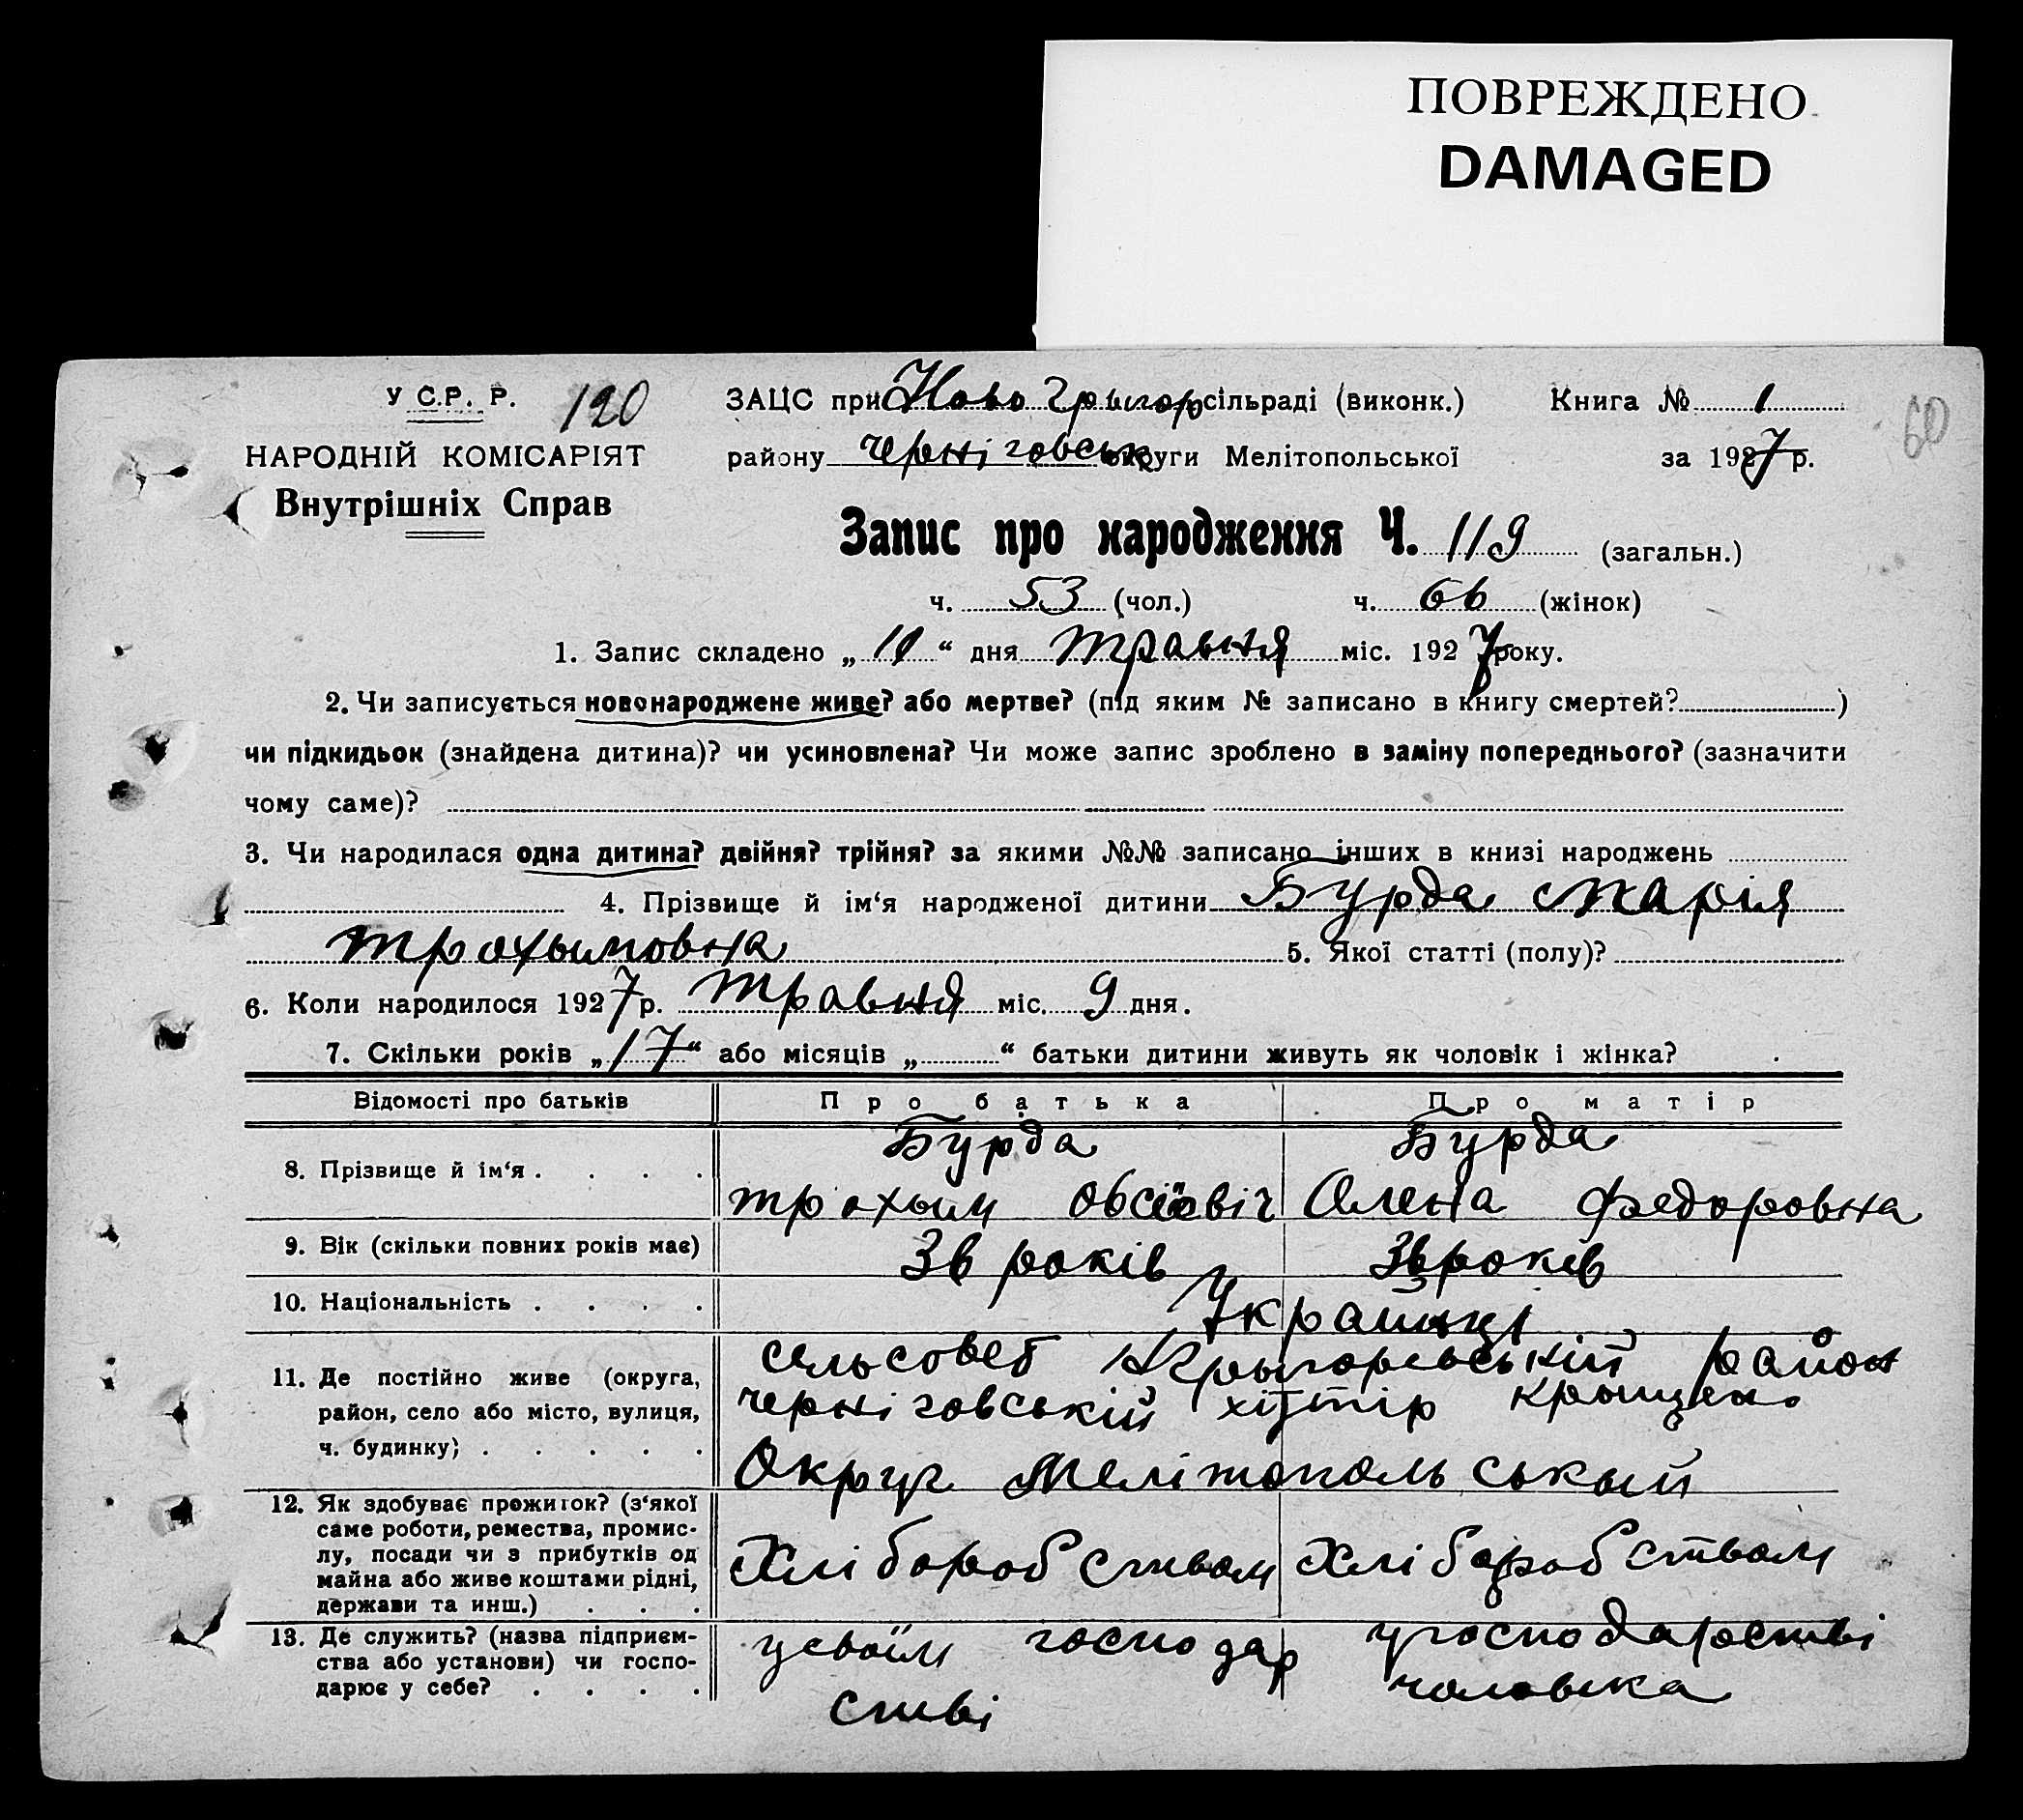 ПОВРЕЖДЕНО
DAMAGED
У С.Р. Р. 120 ЗАЦС при Ново Григор сільраді (виконк.) Книга № 1 60
НАРОДНІЙ КОМІСАРІЯТ району Черніговськ округи Мелітопольської за 1927 р.
Внутрішніх Справ
Запис про народження Ч. 119 (загальн.)
ч. 53 (чол.) ч. 66 (жінок)
1. Запис складено „ “ дня травня міс. 1927 року.
2. Чи записується новонароджене живе? або мертве? (під яким № записано в книгу смертей? )
чи підкидьок (знайдена дитина)? чи усиновлена? Чи може запис зроблено в заміну попереднього? (зазначити
чому саме)?
3. Чи народилася одна дитина? двійня? трійня? за якими №№ записано інших в книзі народжень
4. Прізвище й ім‘я народженої дитини Бурда Марія
Трохымовна 5. Якої статті (полу)?
6. Коли народилося 1927 р. Травня міс. 9 дня.
7. Скільки років „17“ або місяців „ “ батьки дитини живуть як чоловік і жінка?
Відомості про батьків Про батька Про матір
Бурда Бурда
8. Прізвище й ім‘я . . . .
трохым Овсіевіч Олена Федоровна
9. Вік (скільки повних років має) 36 років 36 років
10. Національність . . . . Украинці
сельсовет НГрыгоревській район
11. Де постійно живе (округа,
черніговській хутір
район, село або місто, вулиця,
ч. будинку) . . . . . Округ Мелітопольський
12. Як здобуває прожиток? (з‘якої
саме роботи, ремества, промис-
лу, посади чи з прибутків од Хліборобством Хліборобством
майна або живе коштами рідні,
держави та инш.) . . .
13. Де служить? (назва підприєм- усвоїм господар у господарстві
ства або установи) чи госпо-
дарює у себе? . . . . стві чоловіка